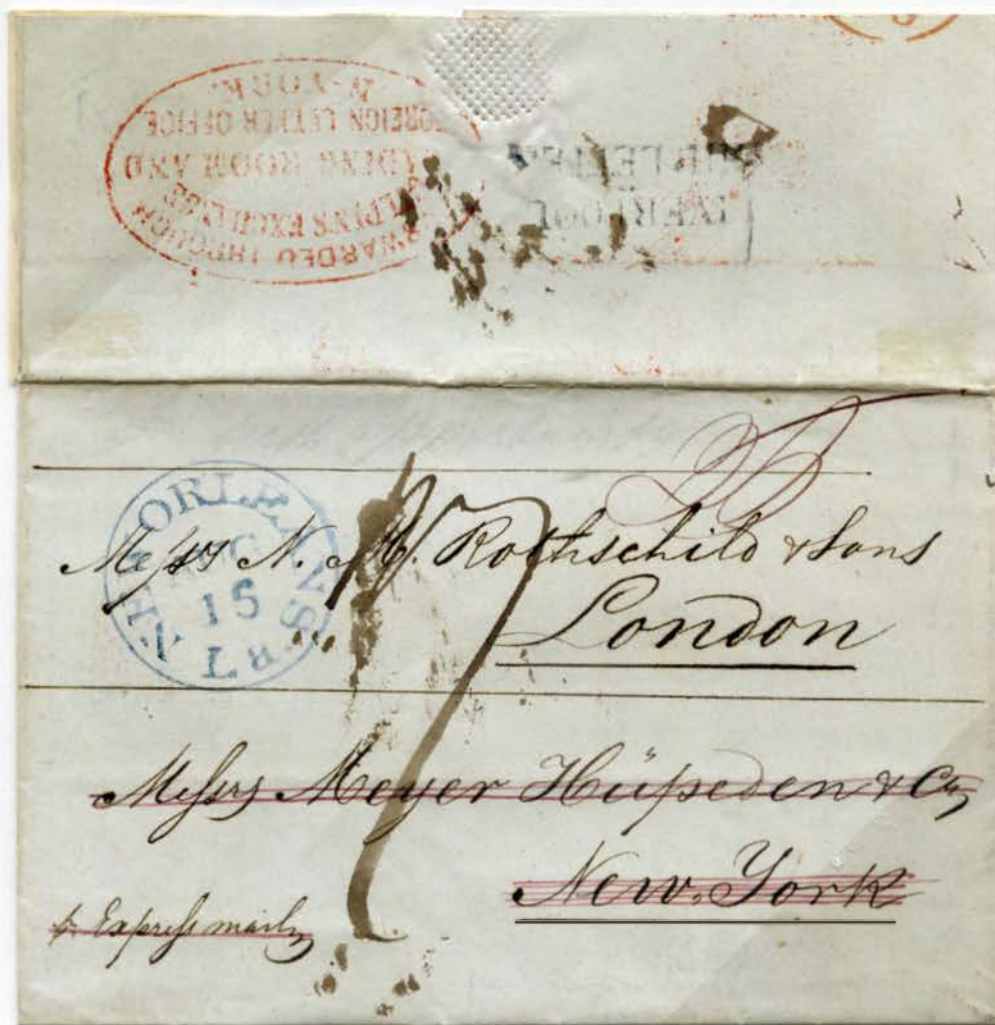 FORWARDED THROUGH
GILPIN'S EXCHANGE
READING ROOM AND
FOREIGN LETTER OFFICE
N-YORK.
LIVERPOOL
SHIP LETTER
NEW ORLEANS LA
15
Messrs N. M. Rothschild & Sons
London
Messrs Meyer Hüpeden & Co,
New York
pr Express mail